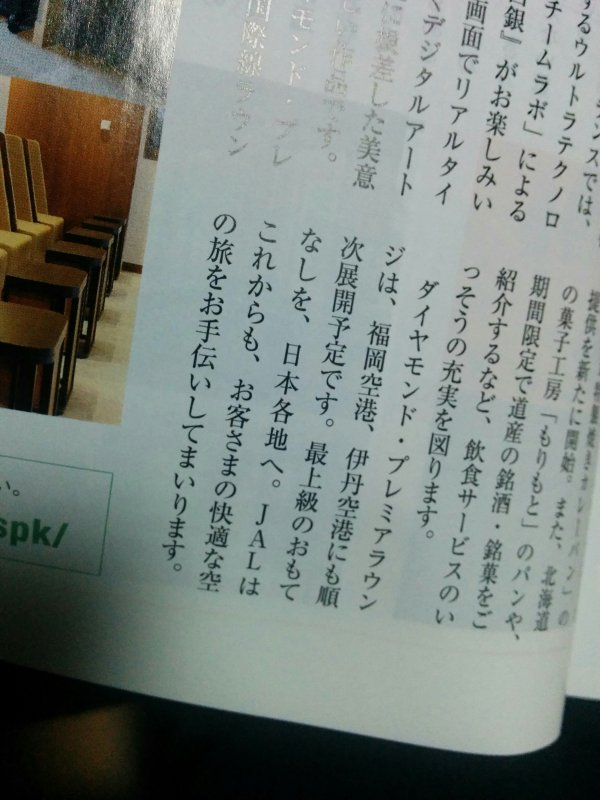 ンスでは、
するウルトラテクノロ
チームラボ」による
銀』がお楽しみい
画面でリアルタイ
くデジタルアート
に根差した美意
しい作品です。
モンド・プレ
国際線ラウン
焼きカレーパン」の
提供を新たに開始。また、北海道
の菓子工房「もりもと」のパンや、
期間限定で道産の銘酒・銘菓をご
紹介するなど、飲食サービスのい
っそうの充実を図ります。
ダイヤモンド・プレミアラウン
ジは、福岡空港、伊丹空港にも順
次展開予定です。最上級のおもて
なしを、日本各地へ。JALは
これからも、お客さまの快適な空
の旅をお手伝いしてまいります。
い。
spk/